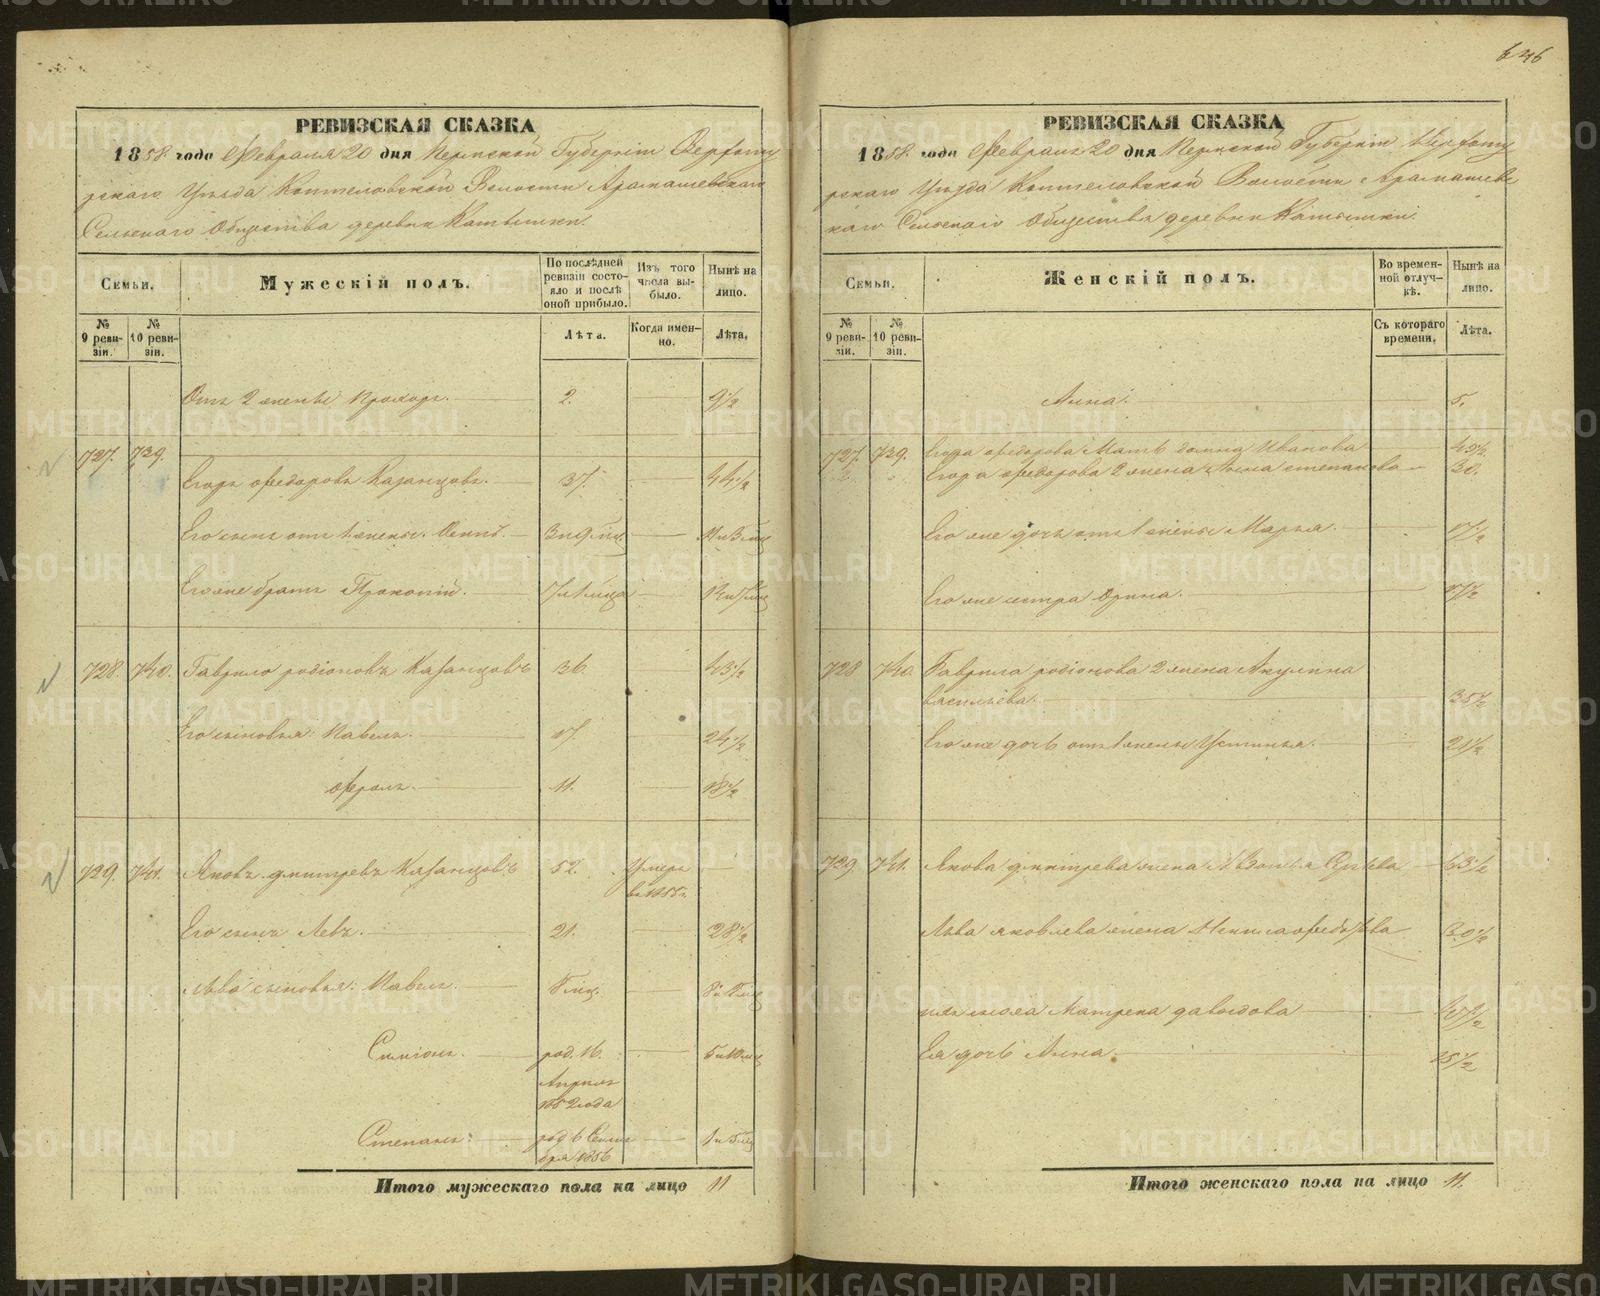 646
РЕВИЗСКАЯ СКАЗКА
1858 года Февраля 20 дня Пермской Губернiи Верхоту
рскаго Уѣзда Коптеловской Волости Арамашевскаго
Сельскаго Общества деревни Катышки.
Семьи.
Мужескiй полъ.
По послѣдней ревизiи состояло и послѣ оной прибыло.
Изъ того числа выбыло.
Нынѣ на лицо.
№ 9 ревизiи.
№ 10 ревизiи.
Лѣта.
Когда именно.
Лѣта.
Отъ 2 жены Прохоръ. 2. 9½
727. 739.
Егоръ Федоровъ Казанцовъ. 37. 44½
Его сынъ отъ 1 жены. Осипъ.
Его же братъ Прокопiй.
728. 740. Гаврило родiоновъ Казанцовъ 36. 43½
Его сыновья: Павелъ. 17. 24½
11. 18½
729. 741. Яковъ дмитревъ Казанцовъ 52. Умеръ
въ 1855 г.
Его сынъ Левъ. 21. 28½
Льва сыновья: Павелъ.
Симiонъ. род. 16.
Апреля
1852 года
Степанъ. род 6 Сентя
бря 1856
Итого мужескаго пола на лицо 11
РЕВИЗСКАЯ СКАЗКА
1858. года Февраля 20 дня Пермской Губернiи Верхоту
рскаго Уѣзда Коптеловской Волости Арамашевс
каго Сельскаго Общества деревни Катышки.
Семьи.
Женскiй полъ.
Во временной отлучкѣ.
Нынѣ на лицо.
№ 9 ревизiи.
№ 10 ревизiи.
Съ котораго времени.
Лѣта.
Анна. 5.
727. 739. Егора Федорова Мать домна Иванова
Егора Федорова 2 жена Анна степанова 30.
Его же дочь отъ 1 жены Марья.
Его же сестра Орина.
728 740. Гаврила родiонова 2 жена Акулина
васильева. 35½
Его же дочь отъ 1 жены Устинья. 21½
729. 741. Якова дмитрева жена 63½
Льва яковлева жена 30½
Матрена давыдова
Ея дочь Анна. 15½
Итого женскаго пола на лицо 11.
METRIKI.GASO-URAL.RU